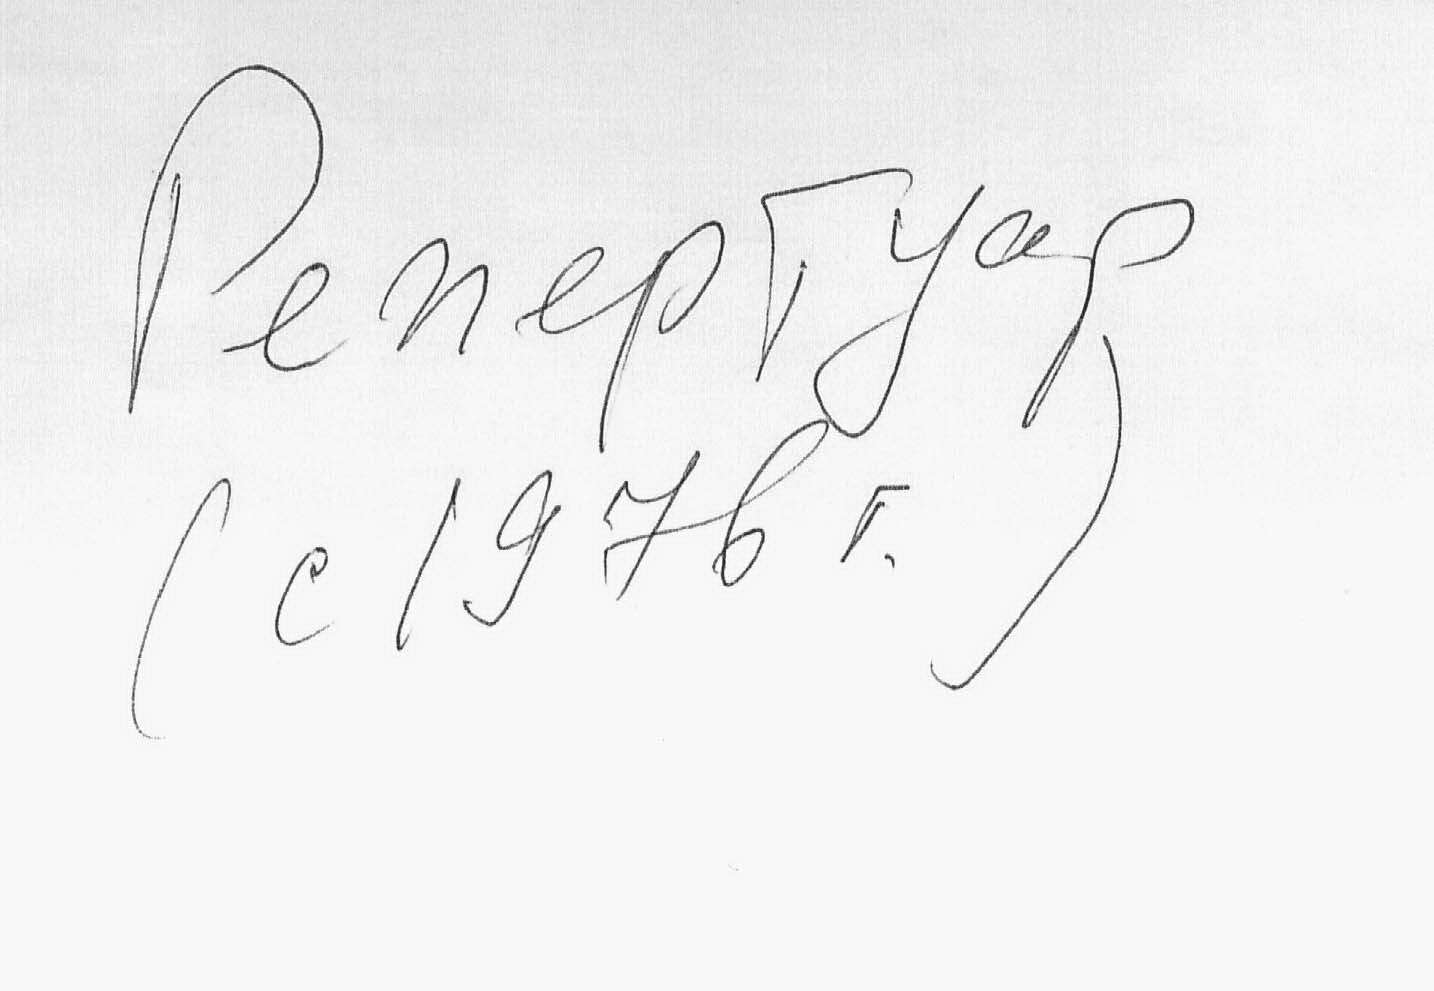 Репертуар
(с 1976 г.)